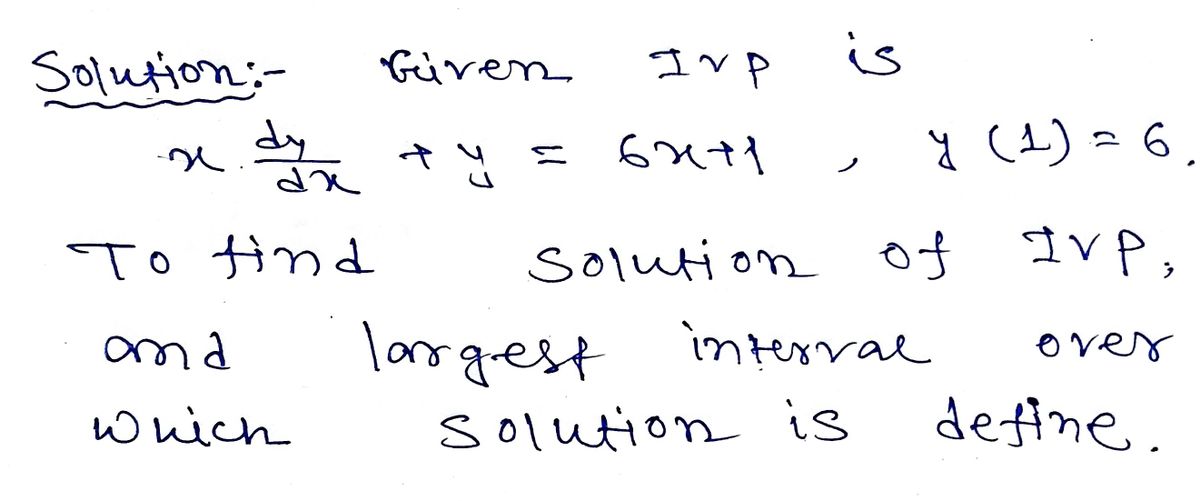 Solution:- Given IVP is
x. dy/dx + y = 6x+1 , y (1) = 6.
To find solution of IVP,
and largest interval over
which solution is define.